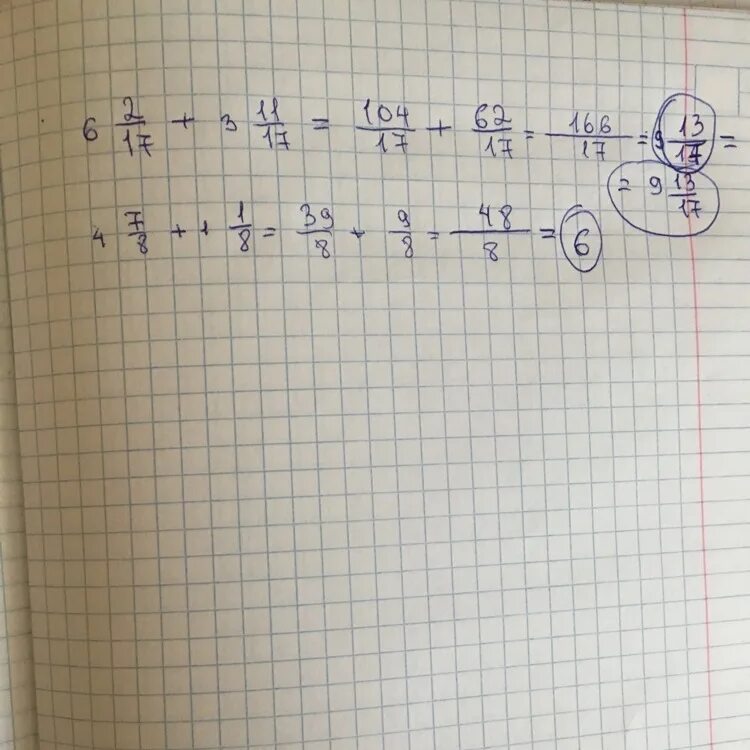 6 2/17 + 3 11/17 = 104/17 + 62/17 = 166/17 = 9 13/17 =
= 9 13/17
4 7/8 + 1 1/8 = 39/8 + 9/8 = 48/8 = 6